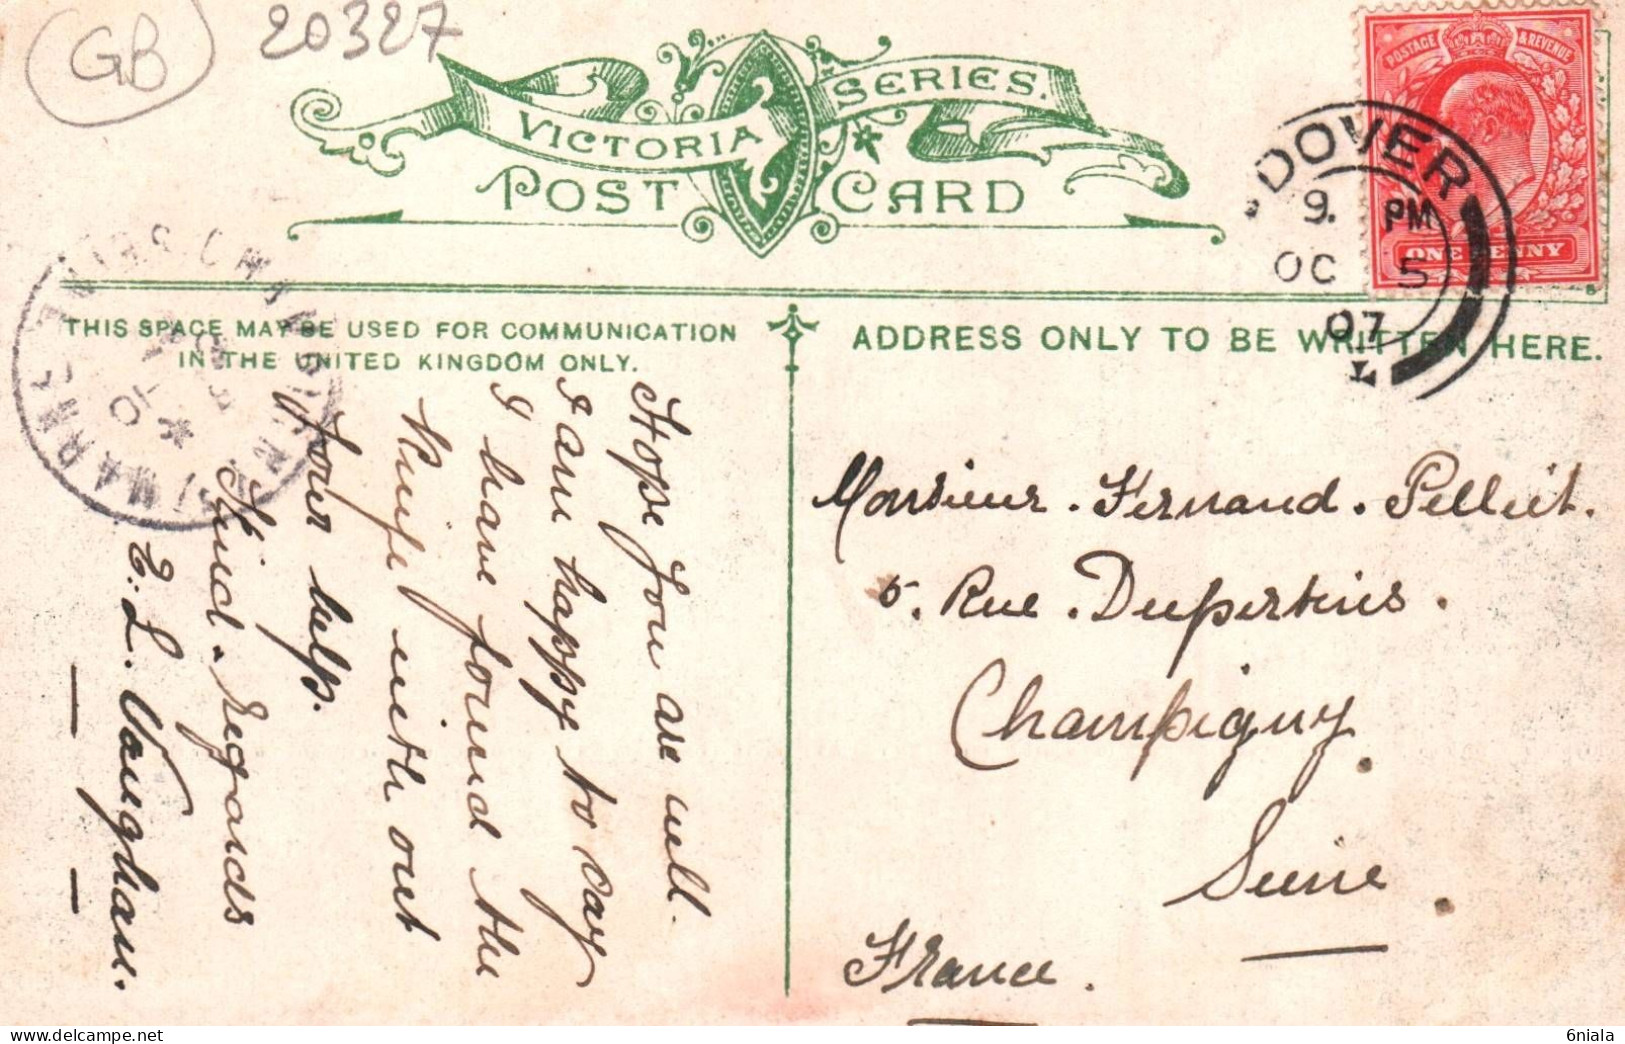 GB 20327
VICTORIA SERIES.
POST CARD
POSTAGE & REVENUE
ONE PENNY
DOVER
9. PM
OC 5
07
L
THIS SPACE MAY BE USED FOR COMMUNICATION
IN THE UNITED KINGDOM ONLY.
ADDRESS ONLY TO BE WRITTEN HERE.
Hope you are well.
I am happy to say
I have found the
Knife with out
your help.
Kind. Regards
E. L. Vaughan.
Monsieur. Fernand. Pellieit.
5. Rue. Dupertius.
Champigny.
Seine.
France.
6niala